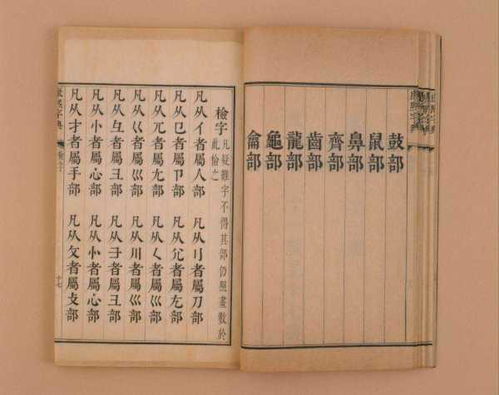 鼓部
鼠部
鼻部
齊部
齒部
龍部
龜部
龠部
檢字 凡疑難字不得其部仍照畫數於
此檢之
凡从亻者屬人部 凡从刂者屬刀部
凡从㔾者屬卩部 凡从尣者屬尢部
凡从兀者屬尢部 凡从𡿨者屬巛部
凡从巜者屬巛部 凡从川者屬巛部
凡从彑者屬彐部 凡从彐者屬彐部
凡从忄者屬心部 凡从㣺者屬心部
凡从扌者屬手部 凡从攵者屬攴部
康熙字典 檢字 十七